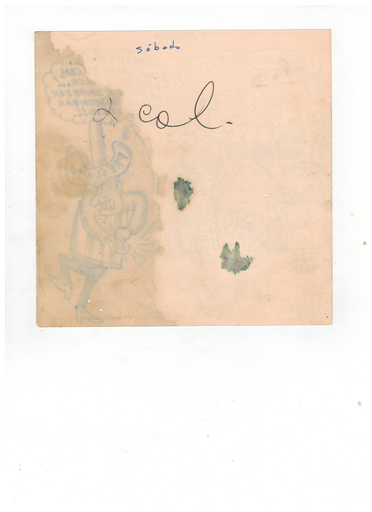 sábado
2 col.